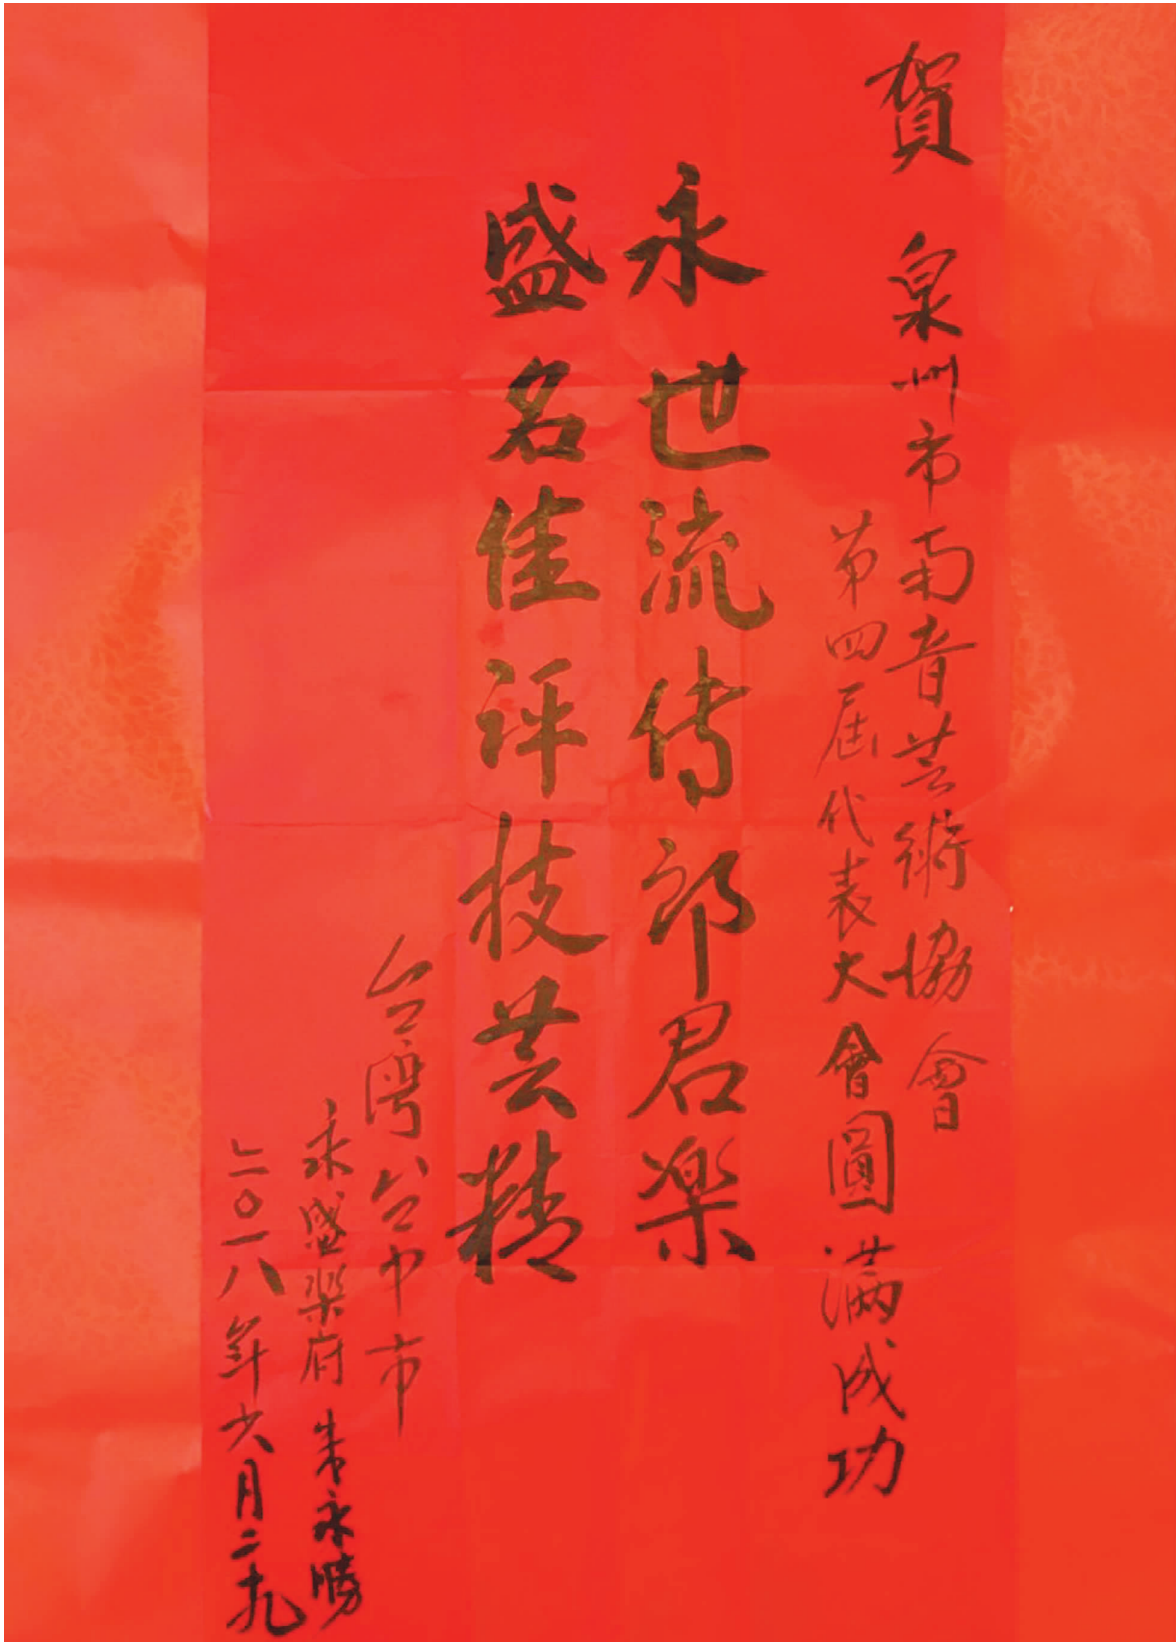 賀 泉州市南音芸術協會
第四屆代表大會圓滿成功
永世流传郎君楽
盛名佳评技芸精
台湾台中市
永盛楽府 朱永勝
二〇一八年六月二十九